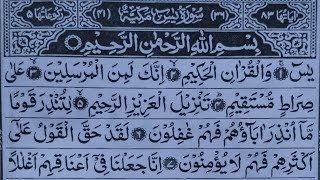 اٰیاتها ۸۳ (۳۶) سُوْرَةُ يٰسٓ مَكِّيَّةٌ (۴۱) رکوعاتها ۵
بِسْمِ اللّٰهِ الرَّحْمٰنِ الرَّحِيْمِ
يٰسٓ ۝۱ وَالْقُرْاٰنِ الْحَكِيْمِ ۝۲ اِنَّكَ لَمِنَ الْمُرْسَلِيْنَ ۝۳ عَلٰى
صِرَاطٍ مُّسْتَقِيْمٍ ۝۴ تَنْزِيْلَ الْعَزِيْزِ الرَّحِيْمِ ۝۵ لِتُنْذِرَ قَوْمًا
مَّاۤ اُنْذِرَ اٰبَآؤُهُمْ فَهُمْ غٰفِلُوْنَ ۝۶ لَقَدْ حَقَّ الْقَوْلُ عَلٰۤى
اَكْثَرِهِمْ فَهُمْ لَا يُؤْمِنُوْنَ ۝۷ اِنَّا جَعَلْنَا فِيْۤ اَعْنَاقِهِمْ اَغْلٰلًا